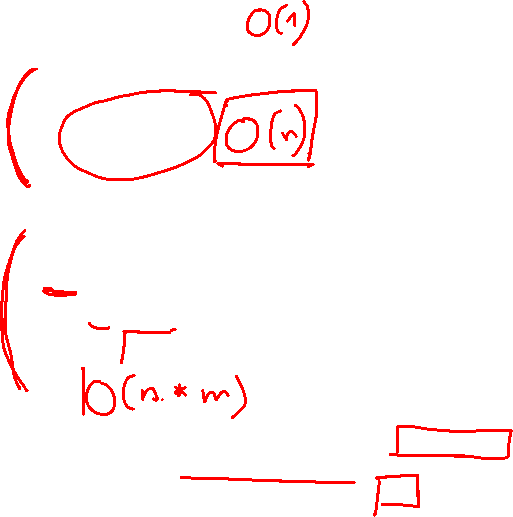 O(1)
O(n)
O(n * m)